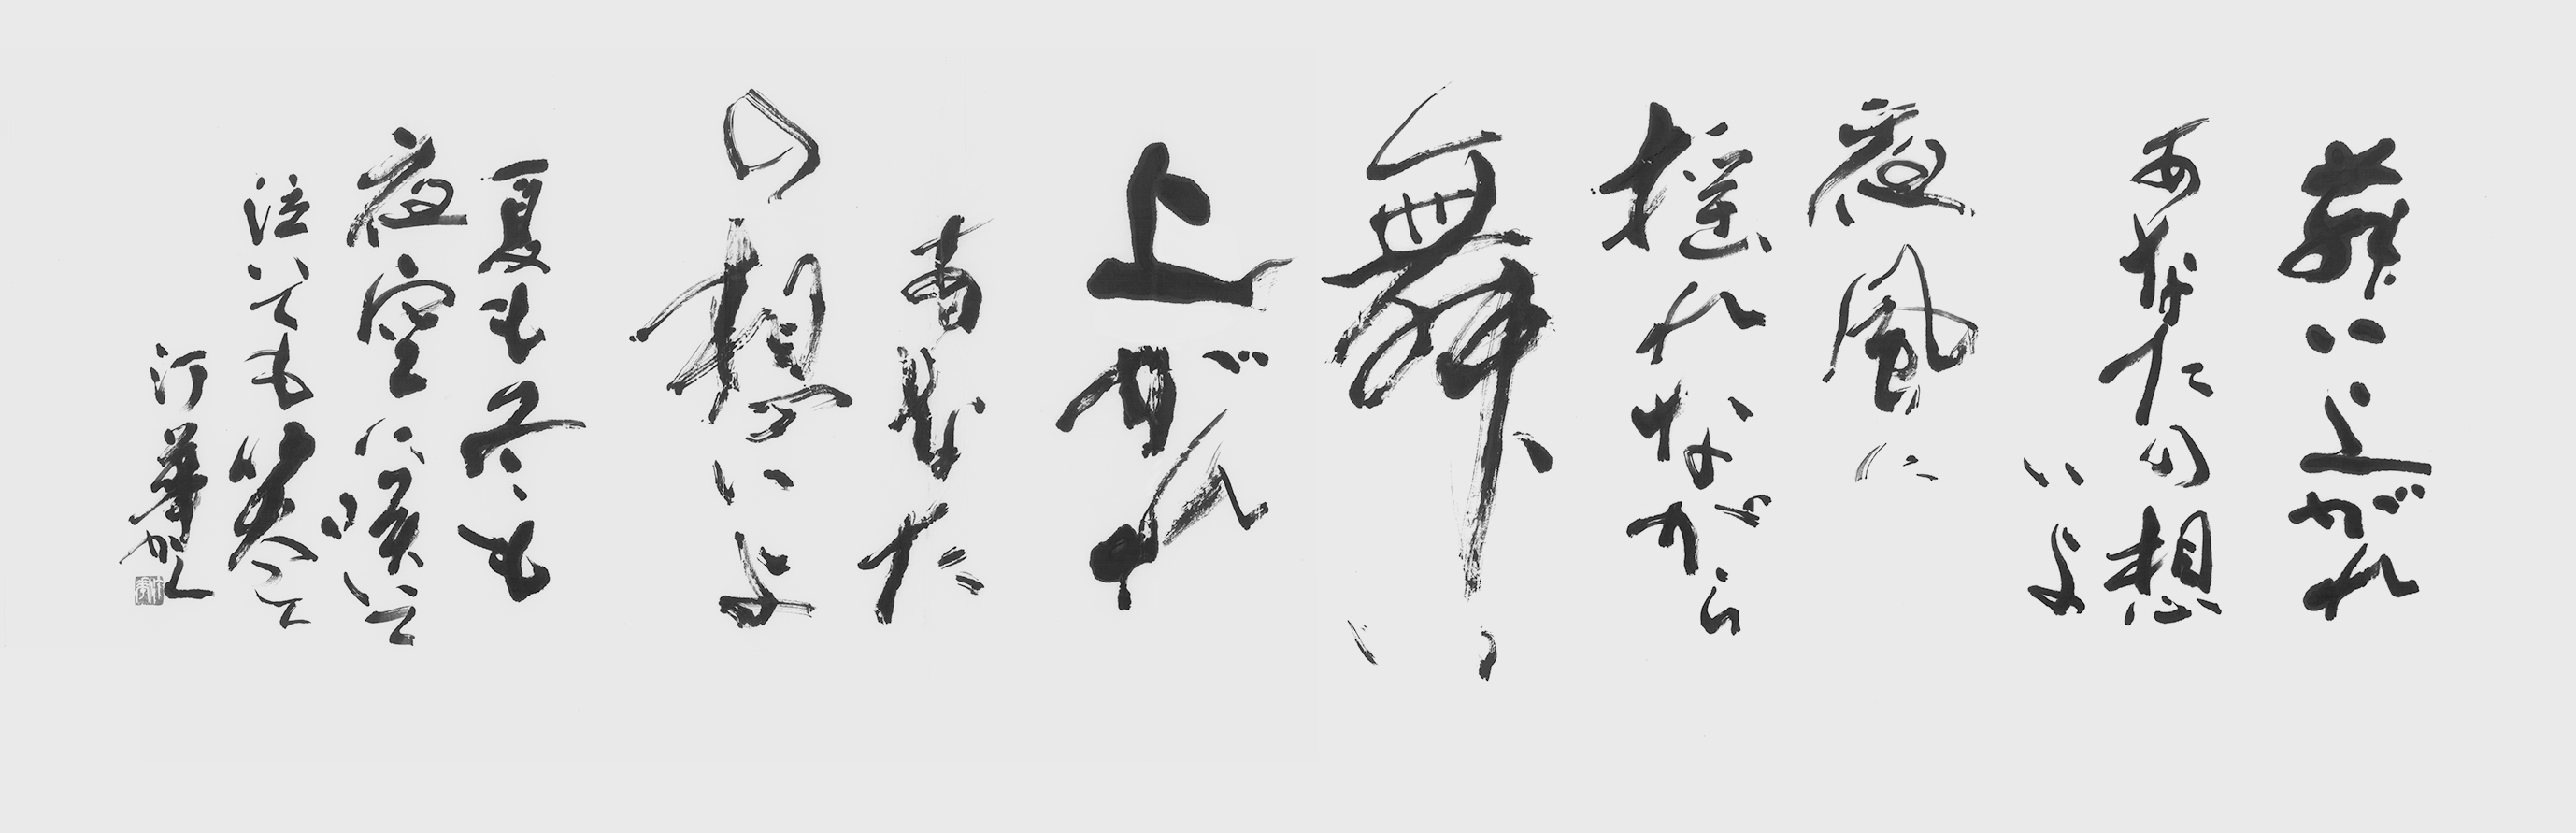 舞い上がれ
あなたの想
いよ
夜風に
揺れながら
舞い
上がれ
あなた
の想いよ
夏も冬も
夜空に咲いて
泣いても笑って
汀華